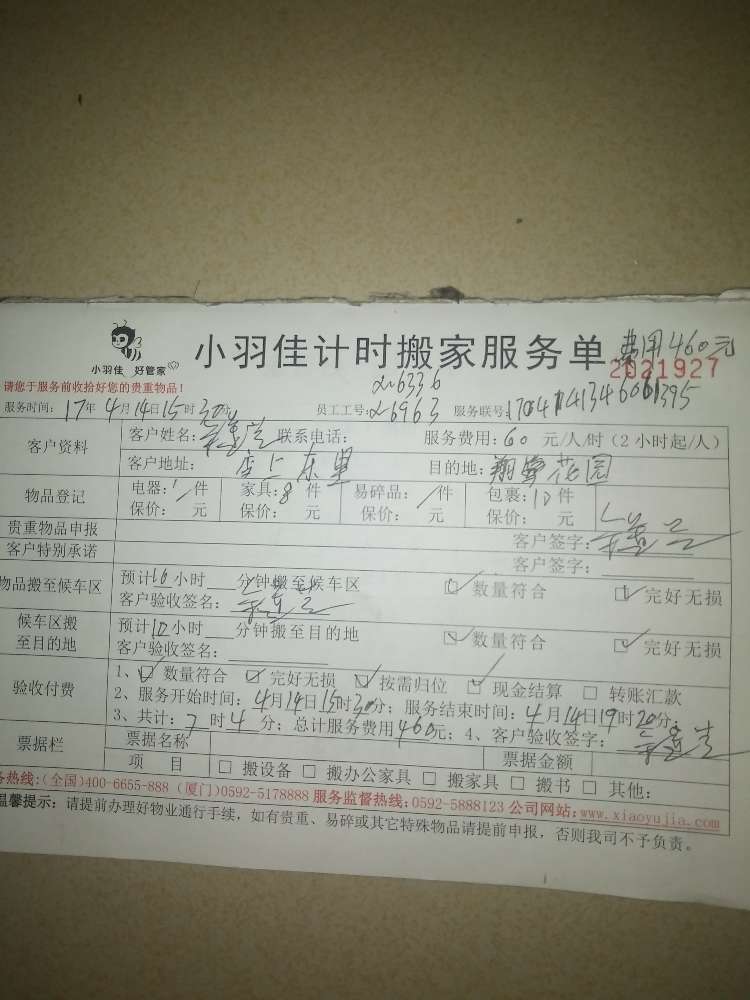 小羽佳 好管家
小羽佳计时搬家服务单 费用460元
2021927
请您于服务前收拾好您的贵重物品!
服务时间: 17年4月14日15时30分 员工工号: 服务联号:
客户资料
客户姓名: 联系电话: 服务费用: 60 元/人/时(2小时起/人)
客户地址: 东里 目的地: 花园
物品登记
电器: 1件 家具: 8件 易碎品: 件 包裹: 10件
保价: 元 保价: 元 保价: 元 保价: 元
贵重物品申报 客户签字:
客户特别承诺 客户签字:
物品搬至候车区
预计 小时 分钟搬至候车区 数量符合 完好无损
客户验收签名:
候车区搬至目的地
预计 小时 分钟搬至目的地 数量符合 完好无损
客户验收签名:
验收付费
1、数量符合 完好无损 按需归位 现金结算 转账汇款
2、服务开始时间: 4月14日15时30分; 服务结束时间: 4月14日19时20分;
3、共计: 时 分; 总计服务费用460元; 4、客户验收签字:
票据栏
票据名称 票据金额
项 目 搬设备 搬办公家具 搬家具 搬书 其他:
务热线:(全国)400-6655-888 (厦门)0592-5178888 服务监督热线:0592-5888123 公司网站:www.xiaoyujia.com
温馨提示: 请提前办理好物业通行手续,如有贵重、易碎或其它特殊物品请提前申报,否则我司不予负责。